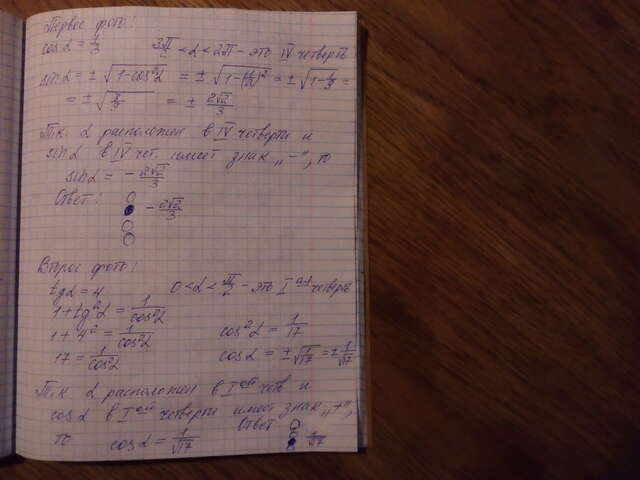 Первое фото!
cos α = 1/3   3π/2 < α < 2π - это IV четверть
sin α = ± √(1-cos²α) = ± √(1-(1/3)²) = ± √(1-1/9) =
= ± √(8/9) = ± 2√2/3
Т.к. α расположен в IV четверти и
sin α в IV чет. имеет знак „-", то
sin α = - 2√2/3
Ответ: - 2√2/3
Второе фото!
tg α = 4   0 < α < π/2 - это I ая четверть
1 + tg²α = 1/cos²α
1 + 4² = 1/cos²α   cos²α = 1/17
17 = 1/cos²α   cos α = ± √(1/17) = ± 1/√17
Т.к α расположен в I ой четв и
cos α в I ой четверти имеет знак „+",
то cos α = 1/√17   Ответ 1/√17